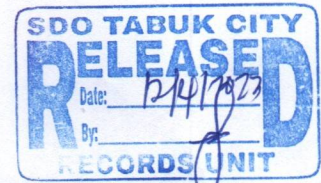 SDO TABUK CITY
RELEASED
Date: 12/4/2023
By:
RECORDS UNIT